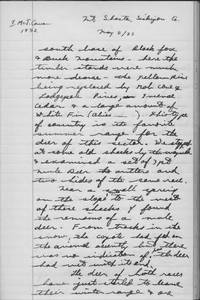 Mt. Shasta, Siskiyou Co.
May 6/32
1932
south base of Black Fox
& Buck Mountains. here the
timber stands were much
more dense - the yellow pine
being replaced by Red &
Lodgepole Pines, Incense
Cedar & a large amount of
White Fir (Abies ). This type
of country is the favorite
summer range for the
deer of this section. We stopped
at some old shacks by the
& examined a set of 3 pt
mule Deer antlers and
two hides of the same
near a small spring
on the slope to the west
of these shacks I found
the remains of a male
deer. From tracks in the
snow, the coyote had
the animal recently but there
was no indication if the deer
had not
the deer of both races
have just started to leave
their winter range & are